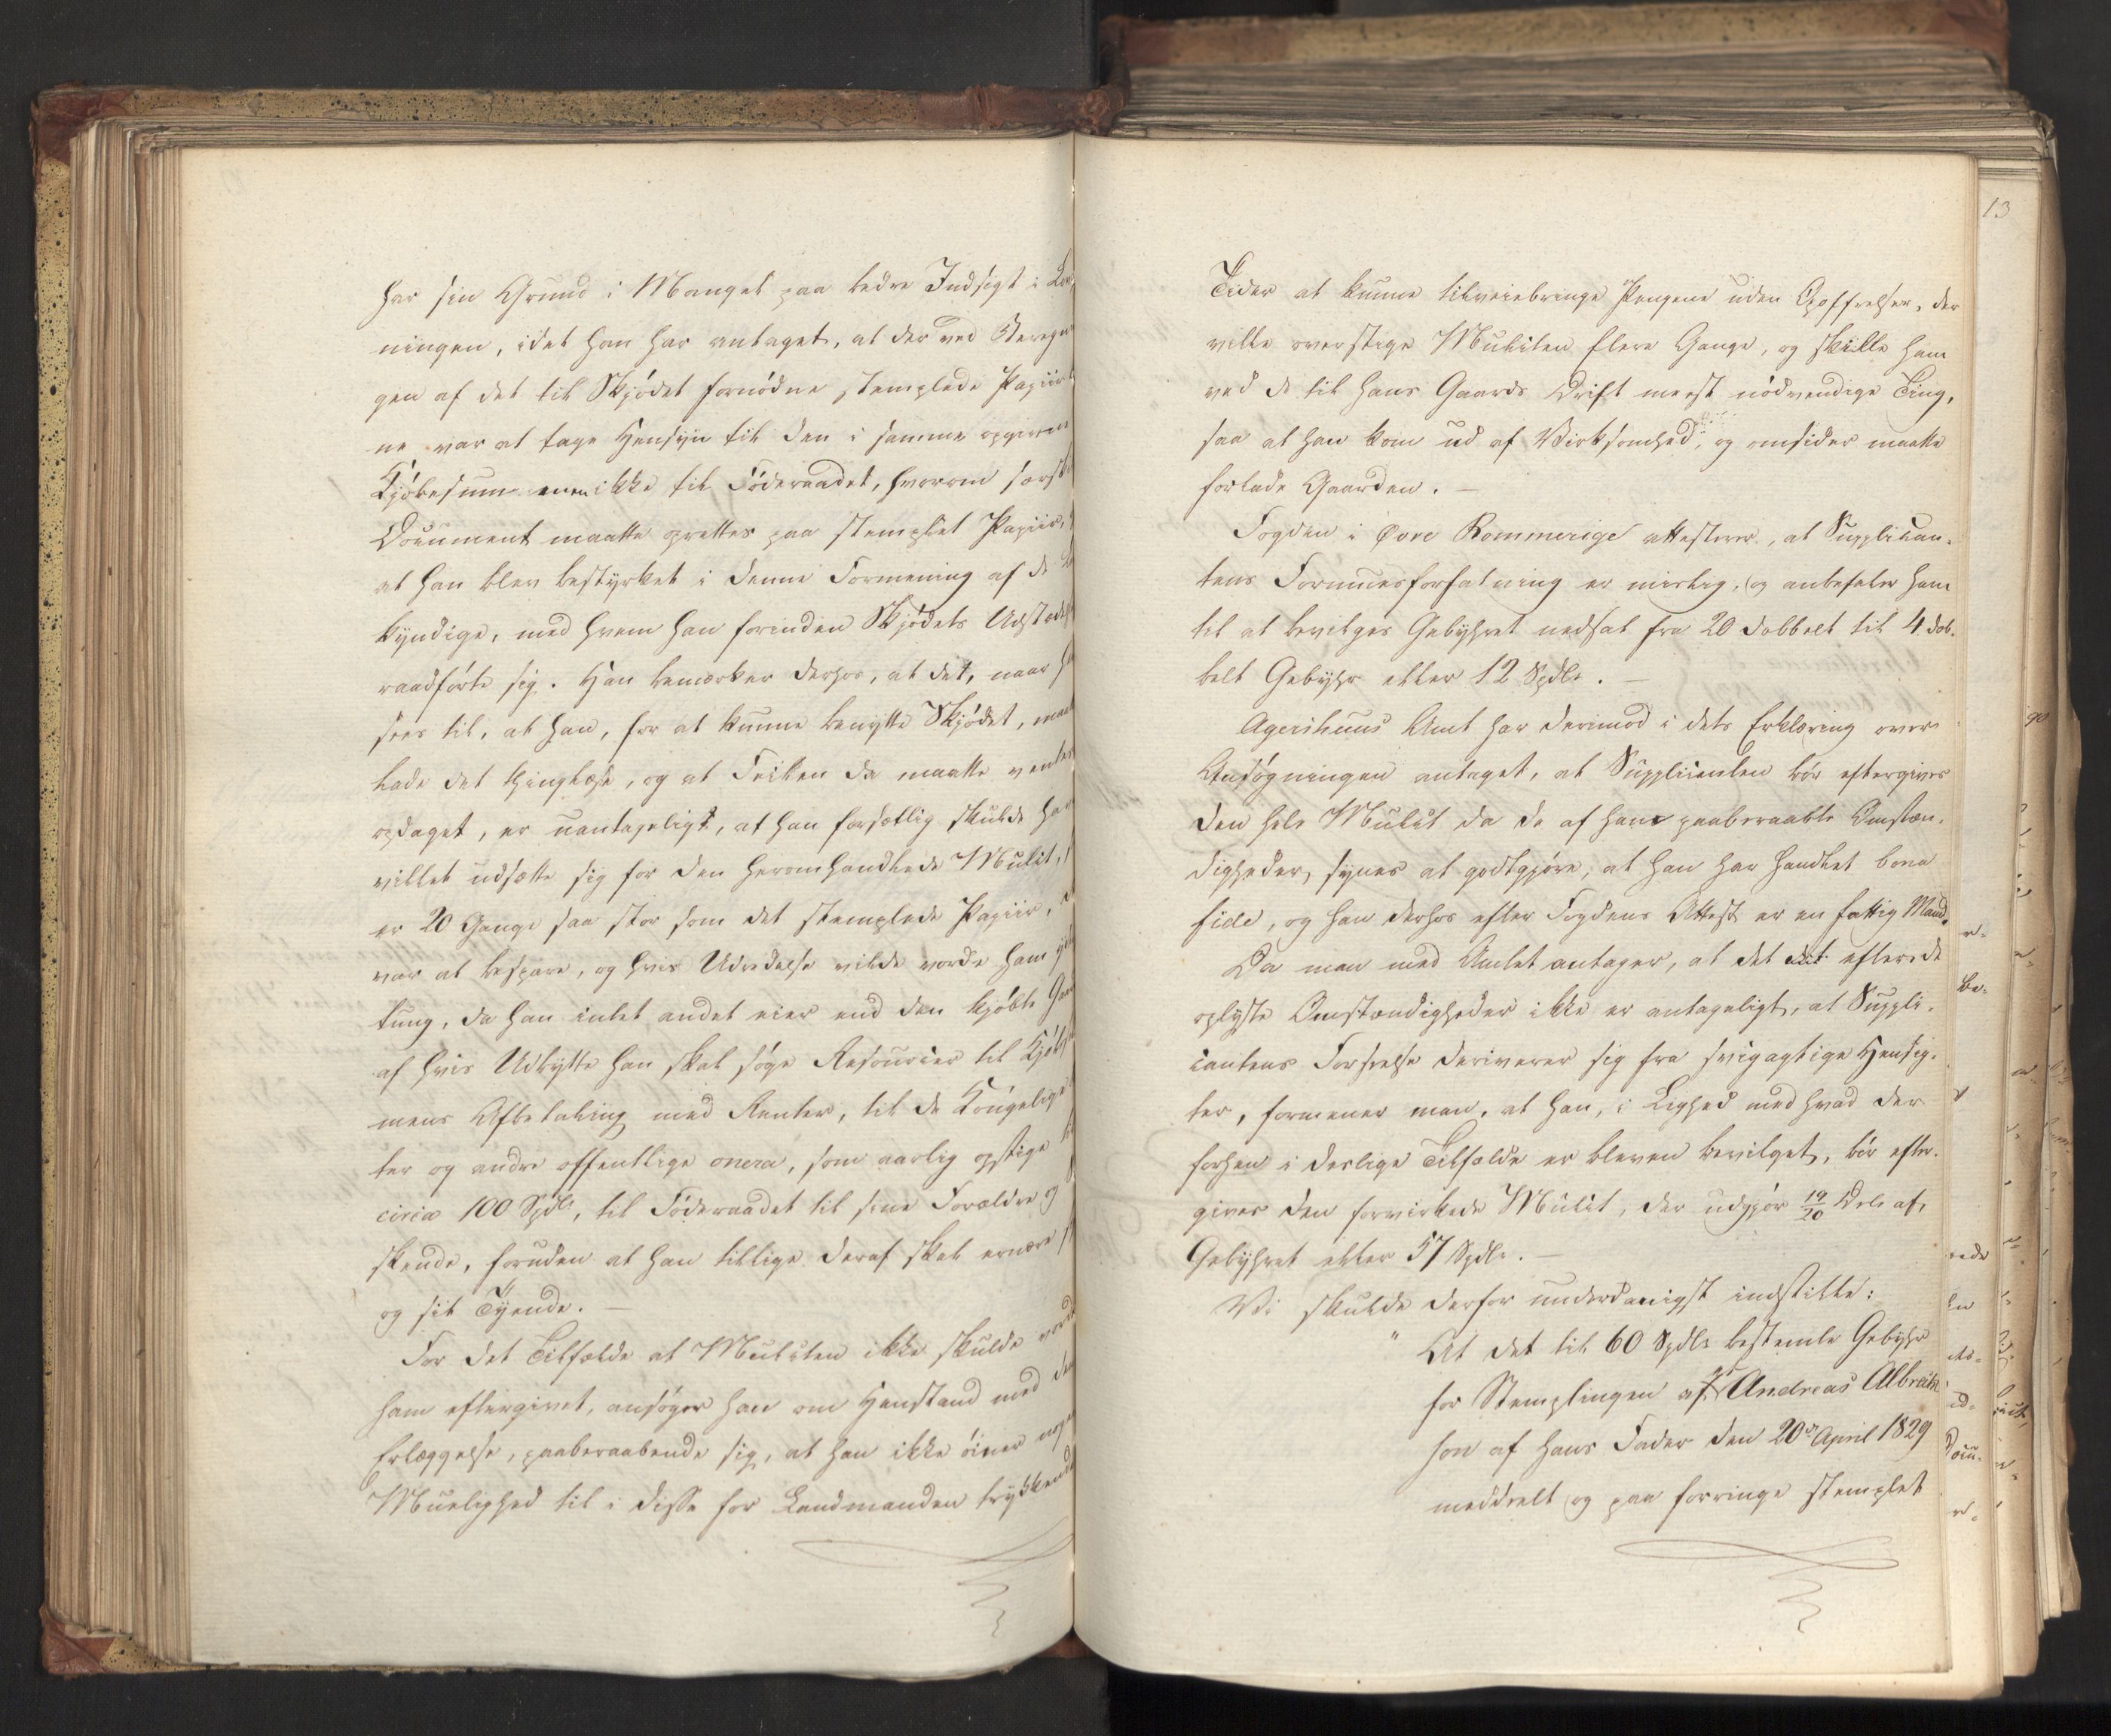 har sin Grund i Mangel paa bedre Indsigt i Lov
ningen, idet han har antaget, at der ved Beregn
gen af det til Skjödet fornödne stemplede Papiir
ne var at tage Hensyn til den i samme opgivne
Kjöbesum men ikke til Föderaadet, hvorom særsk
Document maatte oprettes paa stemplet Papiir,
at han blev bestyrket i denne Formening af de
kyndige, med hvem han forinden Skjödets Udstedel
raadförte sig. Han bemærker derhos, at det, naar
sees til, at han, for at kunne benytte Skjödet, maat
lade det thinglæse, og at Feilen da maatte vente
opdaget, er uantageligt, at han forsætlig skulde ha
villet udsætte sig for den heromhandlede Mulct,
er 20 Gange saa stor som det stemplede Papiir,
var at bespare, og hvis Udredelse vilde vorde ham
tung, da han intet andet eier end den kjöbte Gaa
af hvis Udbytte han skal söge Resourcer til Kjöbe
mens Afbetaling med Renter, til de Kongelige
ter og andre offentlige onera, som aarlig opstige
circa 100 Spdlr, til Föderaadet til sine Forældre og
skende, foruden at han tillige deraf skal ernære
og sit Tyende. —
For det Tilfælde at Mulcten ikke skulde vord
ham eftergivet, ansöger han om Henstand med de
Erlæggelse, paaberaabende sig, at han ikke öiner nog
Muelighed til i disse for Landmanden trykkende
13
Tider at kunne tilveiebringe Pengene uden Opoffrelser, der
ville overstige Mulcten flere Gange, og skille ham
ved de til hans Gaards Drift meest nödvendige Ting,
saa at han kom ud af Virksomhed, og omsider maatte
forlade Gaarden. —
Fogden i Övre Rommerige attesterer, at Supplican-
tens Formuesforfatning er mislig, og anbefaler ham
til at bevilges Gebyhret nedsat fra 20 dobbelt til 4 dob-
belt Gebyhr eller 12 Spdlr. —
Agershuus Amt har derimod i dets Erklæring over
Ansögningen antaget, at Supplicanten bör eftergives
den hele Mulct da de af ham paaberaabte Omstæn-
digheder, synes at godtgjöre, at han har handlet bona
fide, og han derhos efter Fogdens Attest er en fattig Mand.
Da man med Amtet antager, at det efter de
oplyste Omstændigheder ikke er antageligt, at Suppli-
cantens Forseelse deriverer sig fra svigagtige Hensig-
ter, formener man, at han, i Lighed med hvad der
forhen i deslige Tilfælde er bleven bevilget, bör efter-
gives den forvirkede Mulct, der udgjör 19/20 Dele af
Gebyhret eller 57 Spdlr. —
Vi skulde derfor underdanigst indstille:
" At det til 60 Spdlr bestemte Gebyhr
for Stemplingen af Andreas Albrecht
sen af hans Fader den 20de April 1829
meddeelt og paa forringe stemplet